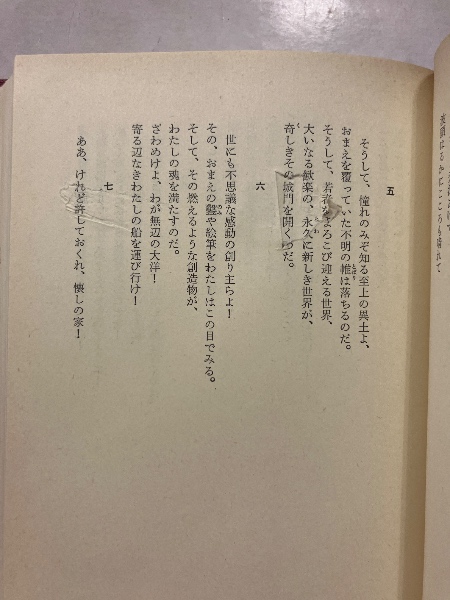 五
そうして、憧れのみぞ知る至上の異土よ、
おまえを覆っていた不明の帷は落ちるのだ。
そうして、若者をよろこび迎える世界、
大いなる歓楽の、永久に新しき世界が、
奇しきその城門を開くのだ。
六
世にも不思議な感動の創り主らよ！
その、おまえの鑿や絵筆をわたしはこの目でみる。
そして、その燃えるような創造物が、
わたしの魂を満たすのだ。
ざわめけよ、わが無辺の大洋！
寄る辺なきわたしの船を運び行け！
七
ああ、けれど許しておくれ、懐しの家！